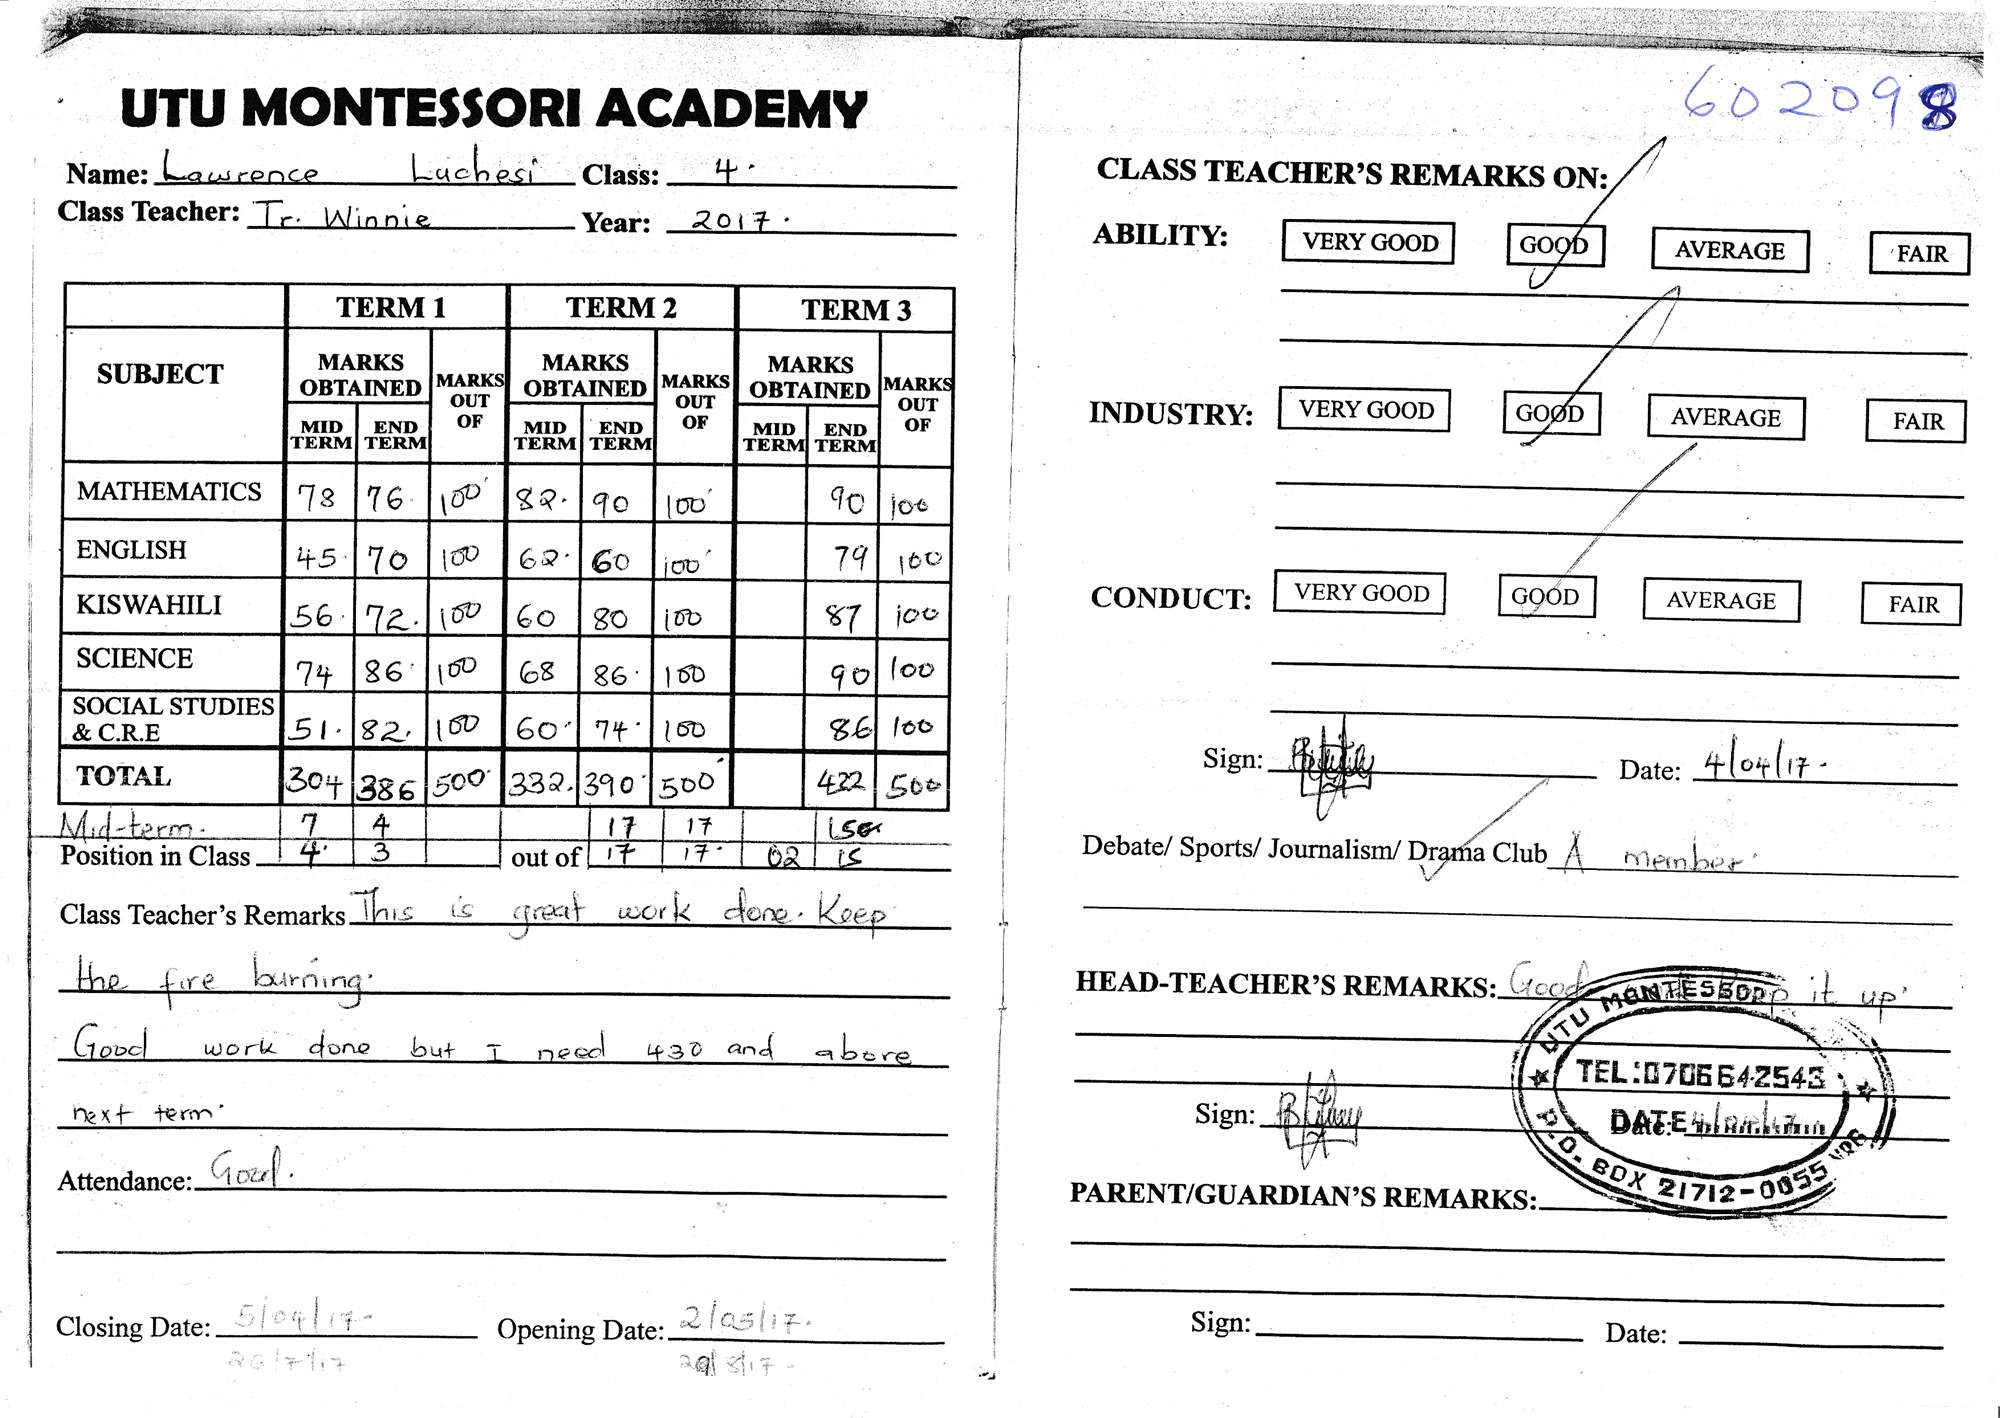 UTU MONTESSORI ACADEMY
Name: Lawrence Luchesi Class: 4.
Class Teacher: Tr. Winnie Year: 2017.
TERM 1 TERM 2 TERM 3
SUBJECT MARKS OBTAINED MARKS OUT OF MARKS OBTAINED MARKS OUT OF MARKS OBTAINED MARKS OUT OF
MID TERM END TERM MID TERM END TERM MID TERM END TERM
MATHEMATICS 78 76. 100 82. 90 100 90 100
ENGLISH 45. 70 100 62. 60 100 79 100
KISWAHILI 56. 72. 100 60 80 100 87 100
SCIENCE 74 86. 100 68 86. 100 90 100
SOCIAL STUDIES & C.R.E 51. 82. 100 60. 74. 100 86 100
TOTAL 304 386 500 332. 390 500 500
Mid-term. 7 4 17 17
Position in Class 4. 3 out of 17 17. 02 15
Class Teacher's Remarks This is great work done. Keep
the fire burning.
Good work done but I need 430 and above
next term.
Attendance: Good.
Closing Date: 5/04/17 - Opening Date: 2/05/17.
26/7/17
602098
CLASS TEACHER'S REMARKS ON:
ABILITY: VERY GOOD GOOD AVERAGE FAIR
INDUSTRY: VERY GOOD GOOD AVERAGE FAIR
CONDUCT: VERY GOOD GOOD AVERAGE FAIR
Sign: Date: 4/04/17.
Debate/ Sports/ Journalism/ Drama Club A member.
HEAD-TEACHER'S REMARKS: Good it up.
UTU MONTESSORI
TEL:0706642543
DATE
P.O. BOX 21712-00
Sign: Date:
PARENT/GUARDIAN'S REMARKS:
Sign: Date: